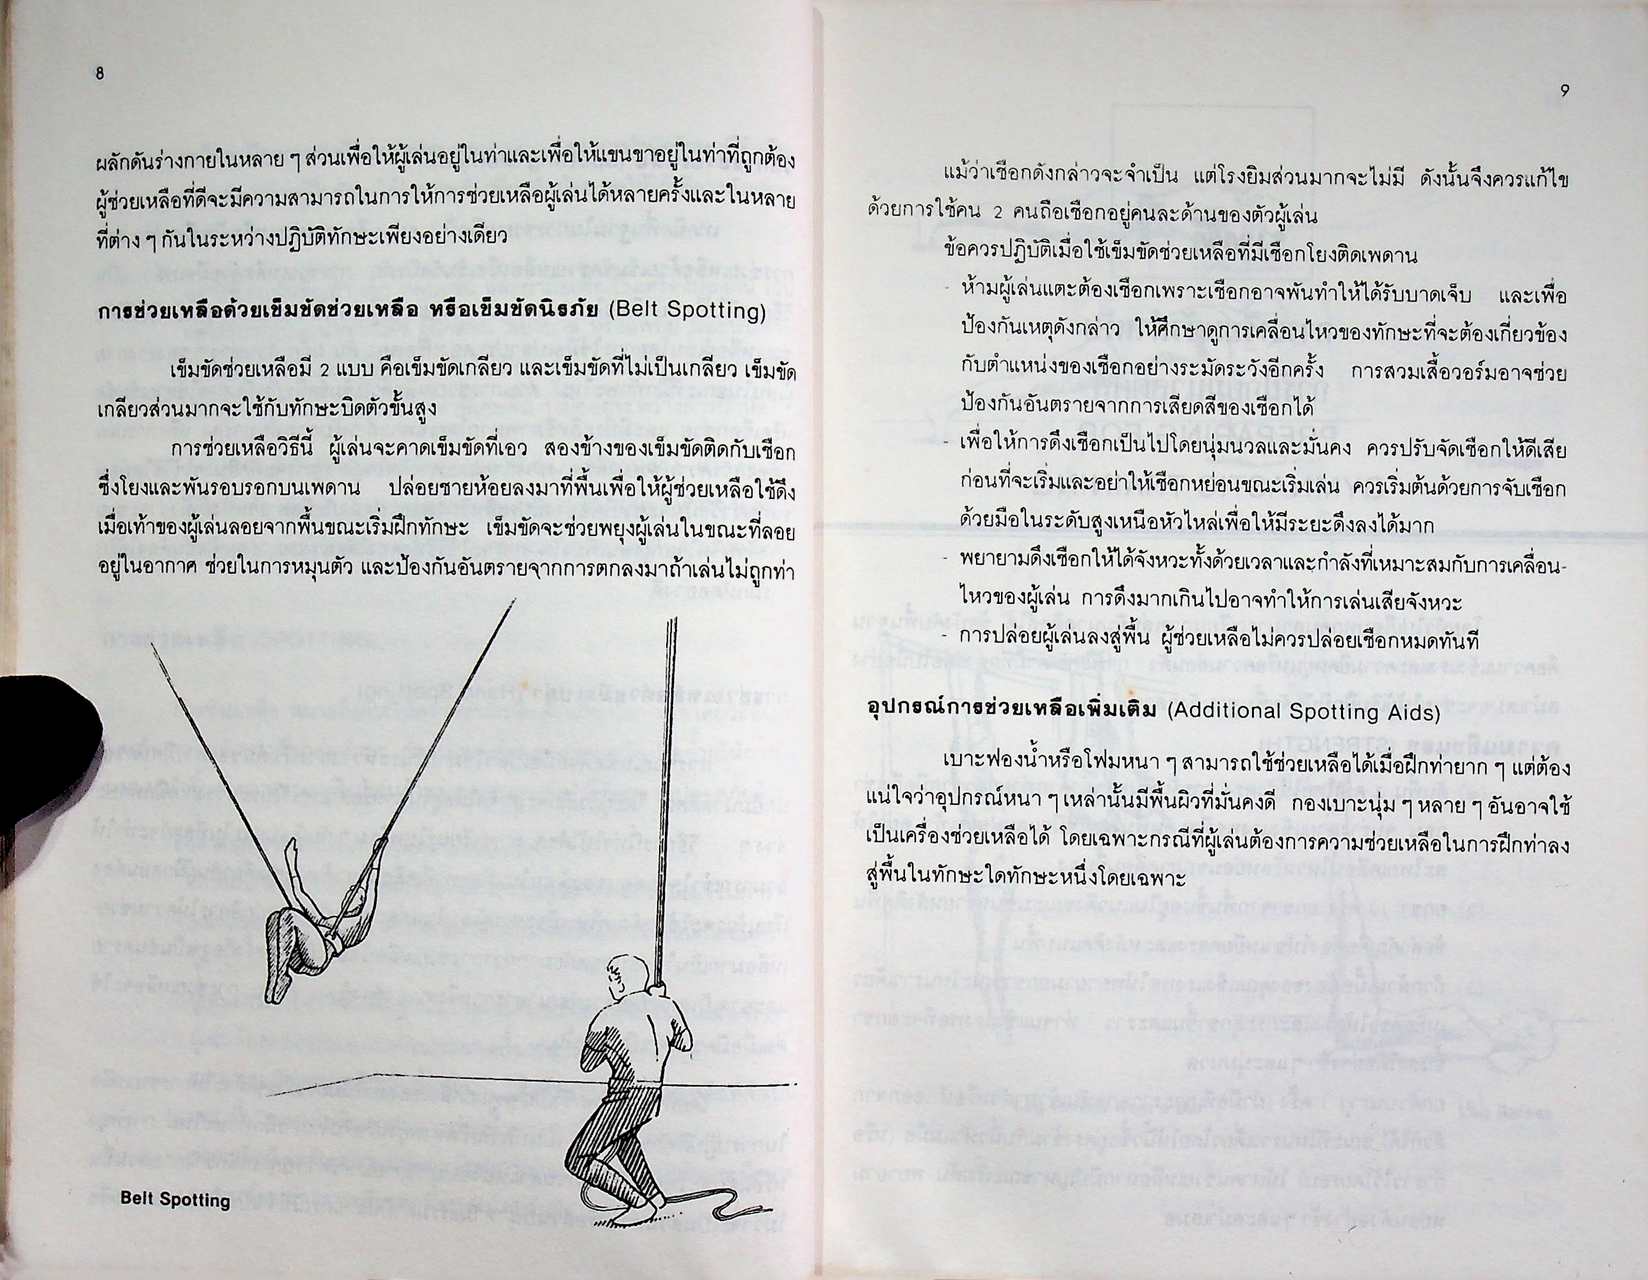 8
ผลักดันร่างกายในหลาย ๆ ส่วนเพื่อให้ผู้เล่นอยู่ในท่าและเพื่อให้แขนขาอยู่ในท่าที่ถูกต้อง
ผู้ช่วยเหลือที่ดีจะมีความสามารถในการให้การช่วยเหลือผู้เล่นได้หลายครั้งและในหลาย
ที่ต่าง ๆ กันในระหว่างปฏิบัติทักษะเพียงอย่างเดียว
การช่วยเหลือด้วยเข็มขัดช่วยเหลือ หรือเข็มขัดนิรภัย (Belt Spotting)
เข็มขัดช่วยเหลือมี 2 แบบ คือเข็มขัดเกลียว และเข็มขัดที่ไม่เป็นเกลียว เข็มขัด
เกลียวส่วนมากจะใช้กับทักษะบิดตัวขั้นสูง
การช่วยเหลือวิธีนี้ ผู้เล่นจะคาดเข็มขัดที่เอว สองข้างของเข็มขัดติดกับเชือก
ซึ่งโยงและพันรอบรอกบนเพดาน ปล่อยชายห้อยลงมาที่พื้นเพื่อให้ผู้ช่วยเหลือใช้ดึง
เมื่อเท้าของผู้เล่นลอยจากพื้นขณะเริ่มฝึกทักษะ เข็มขัดจะช่วยพยุงผู้เล่นในขณะที่ลอย
อยู่ในอากาศ ช่วยในการหมุนตัว และป้องกันอันตรายจากการตกลงมาถ้าเล่นไม่ถูกท่า
Belt Spotting
9
แม้ว่าเชือกดังกล่าวจะจำเป็น แต่โรงยิมส่วนมากจะไม่มี ดังนั้นจึงควรแก้ไข
ด้วยการใช้คน 2 คนถือเชือกอยู่คนละด้านของตัวผู้เล่น
ข้อควรปฏิบัติเมื่อใช้เข็มขัดช่วยเหลือที่มีเชือกโยงติดเพดาน
- ห้ามผู้เล่นแตะต้องเชือกเพราะเชือกอาจพันทำให้ได้รับบาดเจ็บ และเพื่อ
ป้องกันเหตุดังกล่าว ให้ศึกษาดูการเคลื่อนไหวของทักษะที่จะต้องเกี่ยวข้อง
กับตำแหน่งของเชือกอย่างระมัดระวังอีกครั้ง การสวมเสื้อวอร์มอาจช่วย
ป้องกันอันตรายจากการเสียดสีของเชือกได้
- เพื่อให้การดึงเชือกเป็นไปโดยนุ่มนวลและมั่นคง ควรปรับจัดเชือกให้ดีเสีย
ก่อนที่จะเริ่มและอย่าให้เชือกหย่อนขณะเริ่มเล่น ควรเริ่มต้นด้วยการจับเชือก
ด้วยมือในระดับสูงเหนือหัวไหล่เพื่อให้มีระยะดึงลงได้มาก
- พยายามดึงเชือกให้ได้จังหวะทั้งด้วยเวลาและกำลังที่เหมาะสมกับการเคลื่อน-
ไหวของผู้เล่น การดึงมากเกินไปอาจทำให้การเล่นเสียจังหวะ
- การปล่อยผู้เล่นลงสู่พื้น ผู้ช่วยเหลือไม่ควรปล่อยเชือกหมดทันที
อุปกรณ์การช่วยเหลือเพิ่มเติม (Additional Spotting Aids)
เบาะฟองน้ำหรือโฟมหนา ๆ สามารถใช้ช่วยเหลือได้เมื่อฝึกท่ายาก ๆ แต่ต้อง
แน่ใจว่าอุปกรณ์หนา ๆ เหล่านั้นมีพื้นผิวที่มั่นคงดี กองเบาะนุ่ม ๆ หลาย ๆ อันอาจใช้
เป็นเครื่องช่วยเหลือได้ โดยเฉพาะกรณีที่ผู้เล่นต้องการความช่วยเหลือในการฝึกท่าลง
สู่พื้นในทักษะใดทักษะหนึ่งโดยเฉพาะ